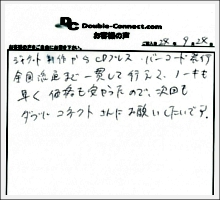 DC Double-Connect.com
お客様の声
お客様の声をご自由にお書き下さい。
ご記入日 24年 9月 28日
ジャケット制作からCDプレス・バーコード発行
全国流通まで一貫して行えて、ノーキも
早く価格も安かったので、次回も
ダブルコネクトさんにお願いしたいです。